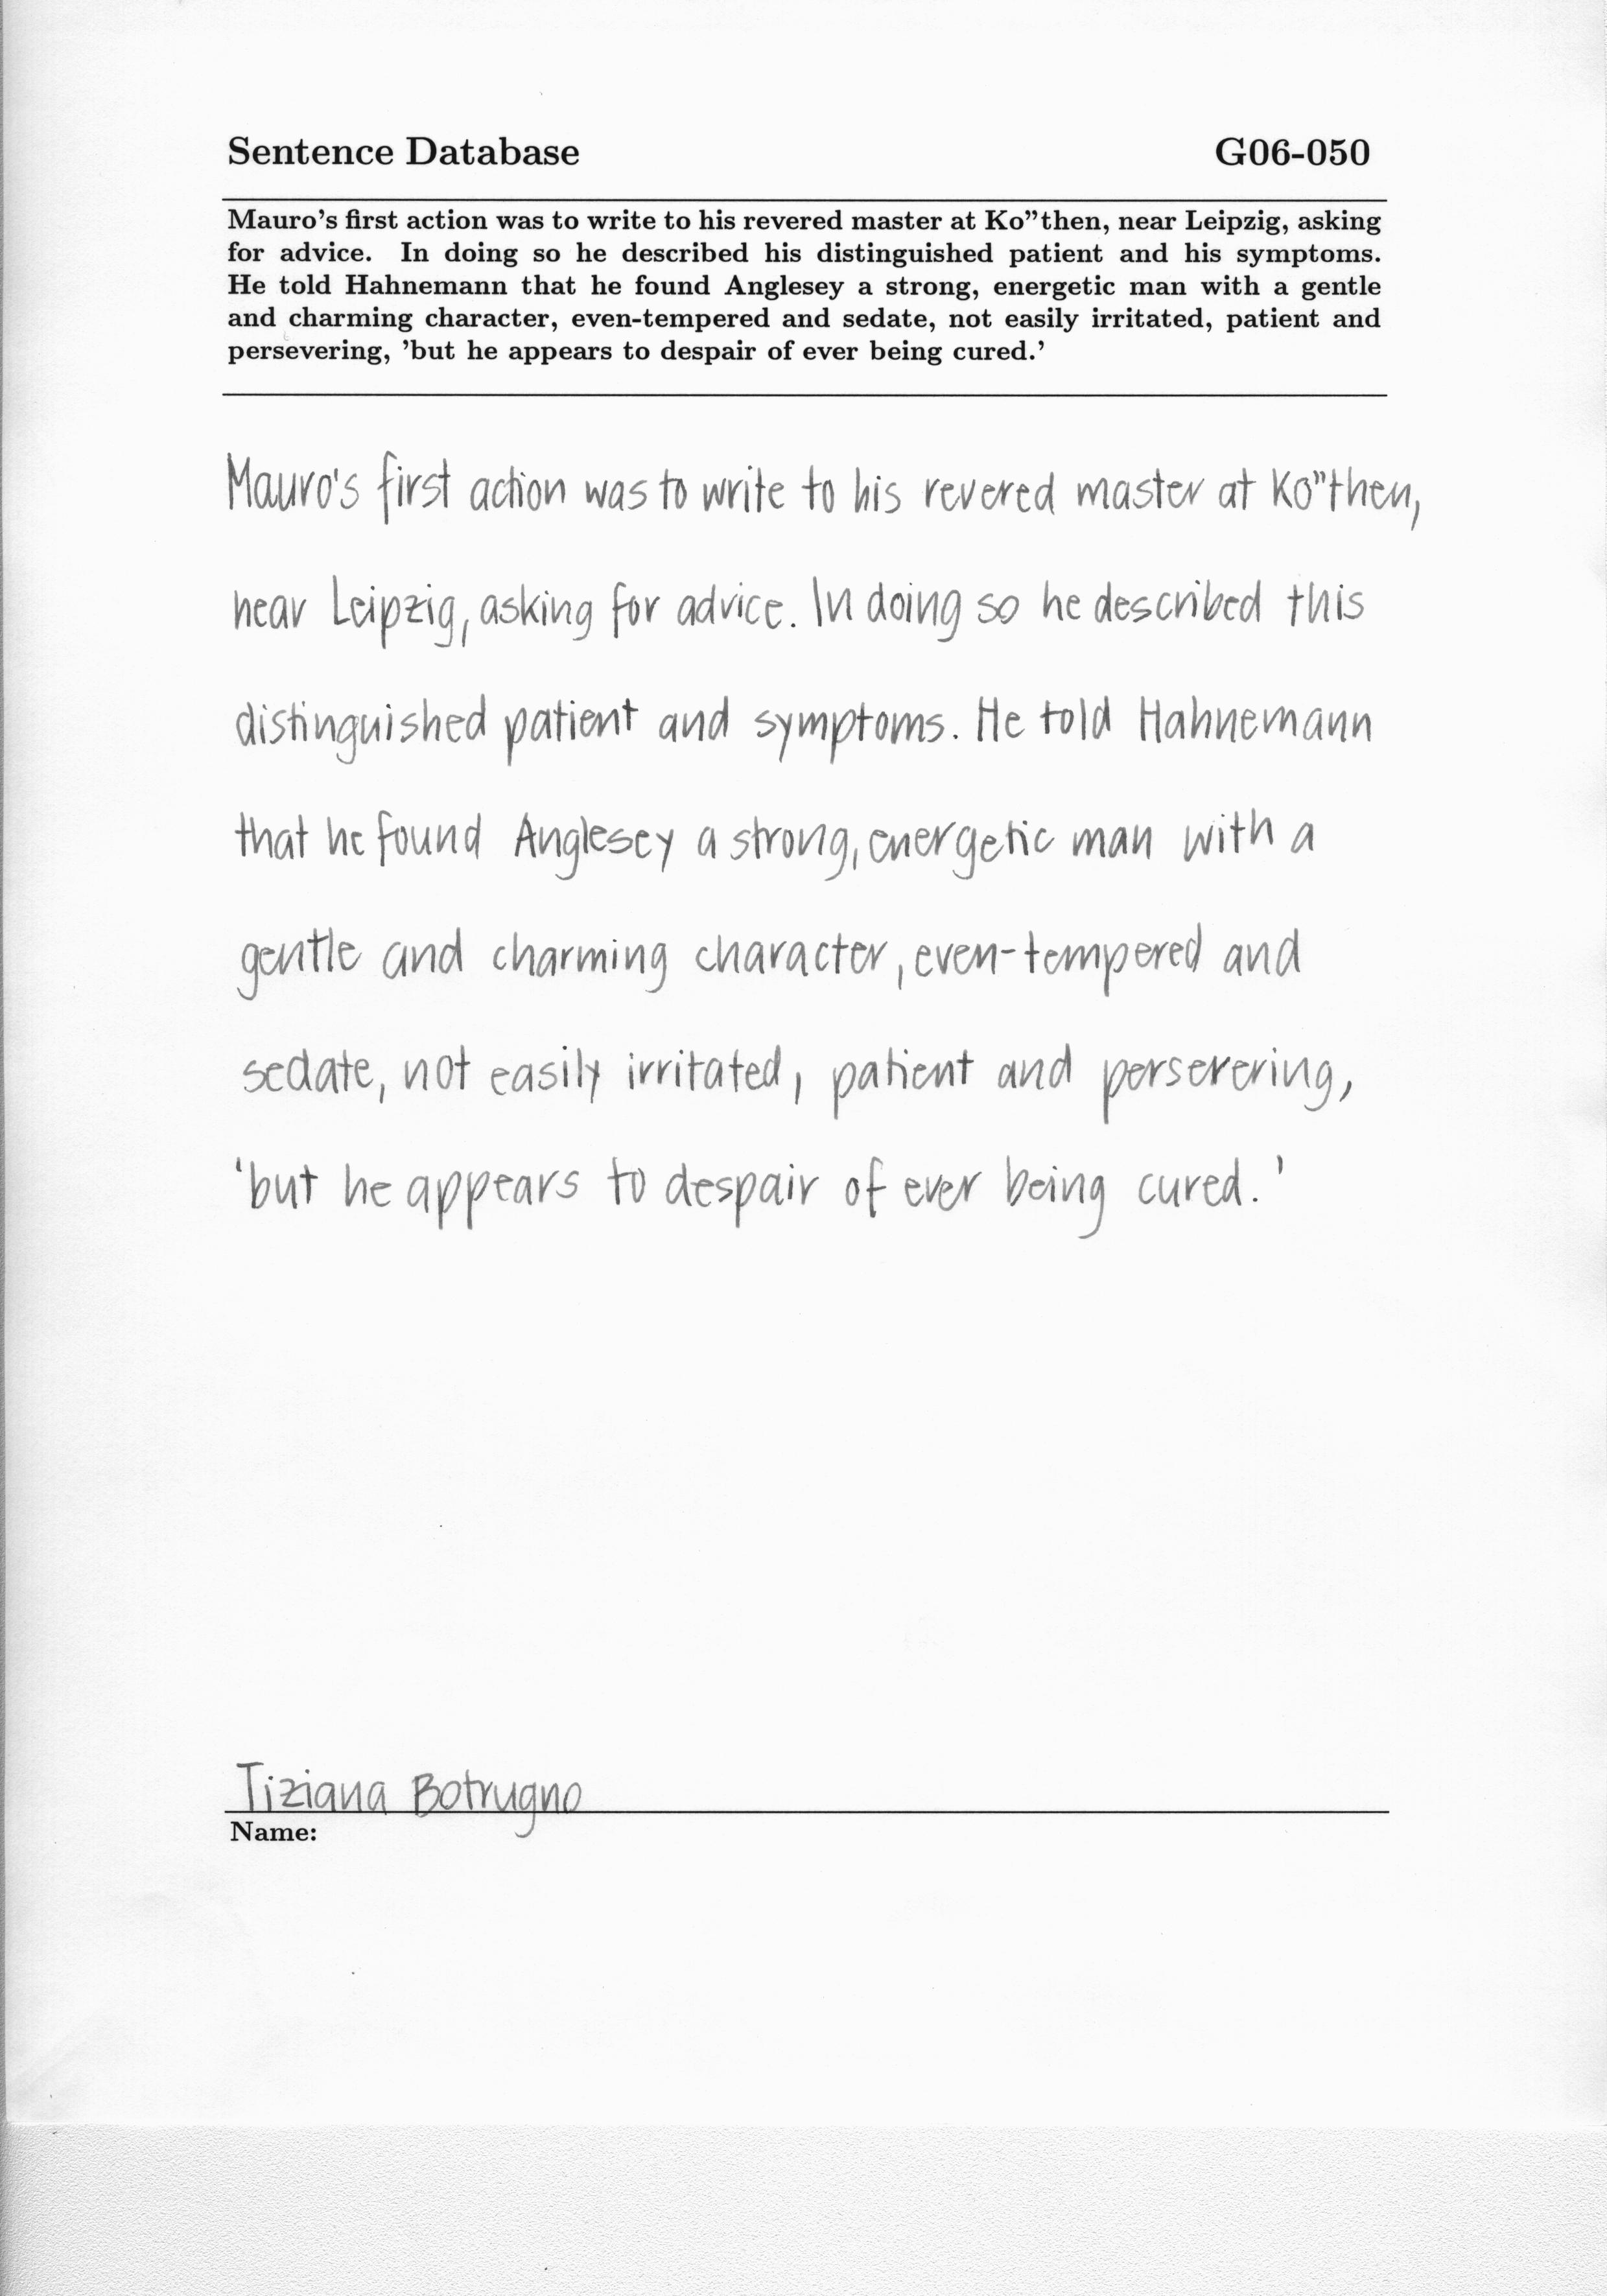 Sentence Database G06-050
Mauro's first action was to write to his revered master at Ko”then, near Leipzig, asking
for advice. In doing so he described his distinguished patient and his symptoms.
He told Hahnemann that he found Anglesey a strong, energetic man with a gentle
and charming character, even-tempered and sedate, not easily irritated, patient and
persevering, ’but he appears to despair of ever being cured.’
Mauro's first action was to write to his revered master at Ko”then,
near Leipzig, asking for advice. In doing so he described this
distinguished patient and symptoms. He told Hahnemann
that he found Anglesey a strong, energetic man with a
gentle and charming character, even-tempered and
sedate, not easily irritated, patient and persevering,
‘but he appears to despair of ever being cured.’
Tiziana Botrugno
Name: